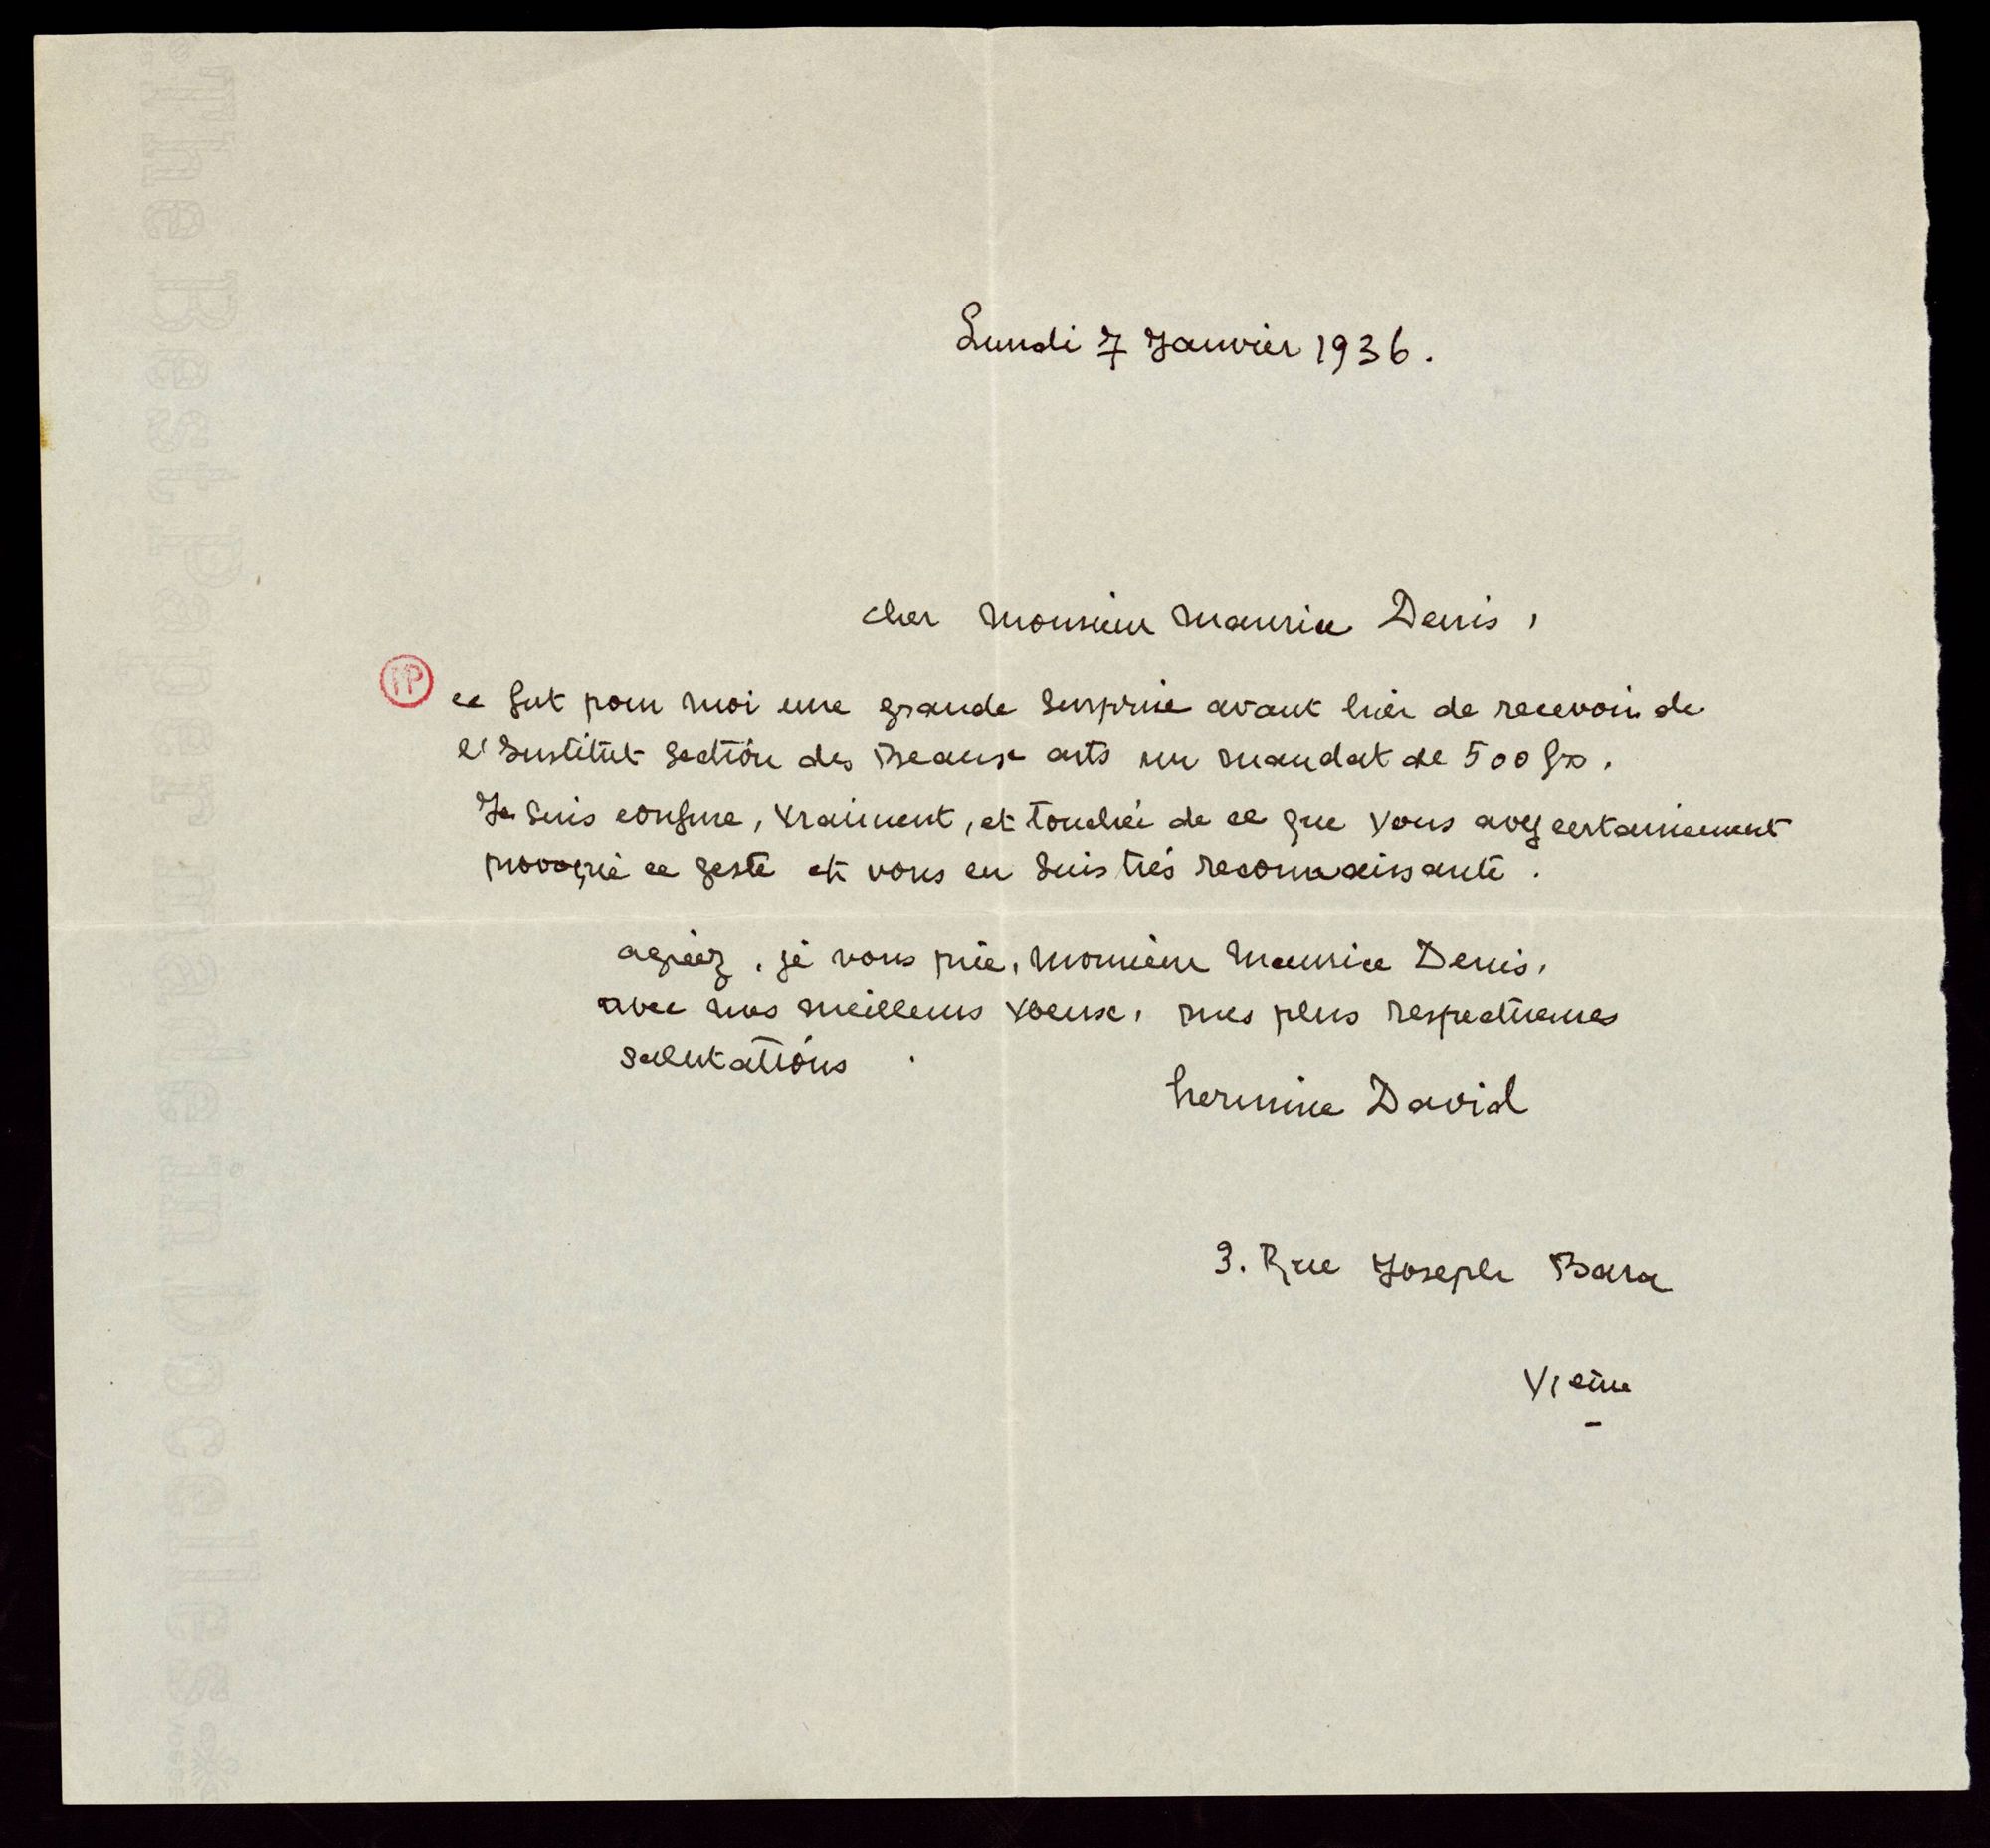 Lundi 7 Janvier 1936.
cher Monsieur Maurice Denis,
ce fut pour moi une grande surprise avant hier de recevoir de
l'Institut section des Beaux arts un mandat de 500 frs.
Je suis confuse, vraiment, et touchée de ce que vous avez certainement
provoqué ce geste et vous en suis très reconnaissante.
agréez, je vous prie, Monsieur Maurice Denis,
avec mes meilleurs voeux, mes plus respectueuses
salutations.
hermine David
3. Rue Joseph Bara
VI eme